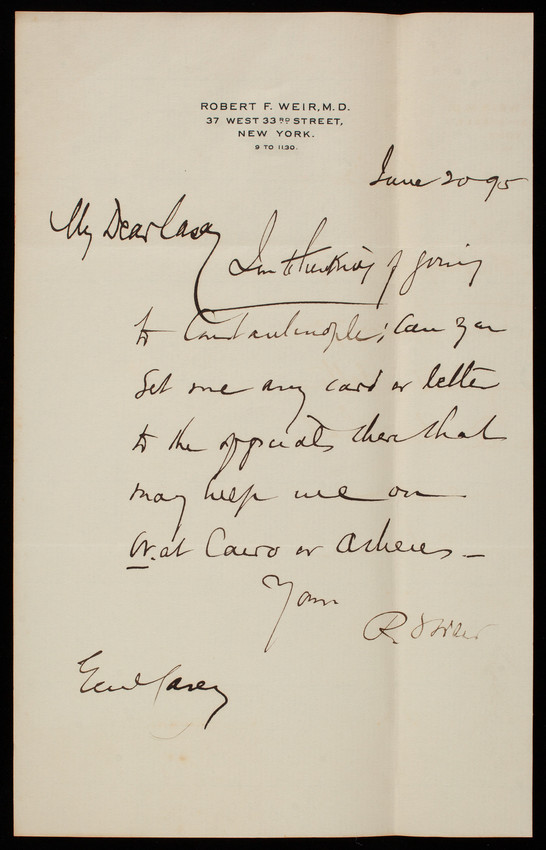 ROBERT F. WEIR, M.D.
37 WEST 33RD STREET,
NEW YORK.
9 TO 11.30.
June 20 95
My Dear Casey
I'm thinking of going
to Constantinople; Can you
Get me any card or letter
to the officials there that
may help me on
or at Cairo or Athens —
Yours
R. F. Weir
Genl Casey